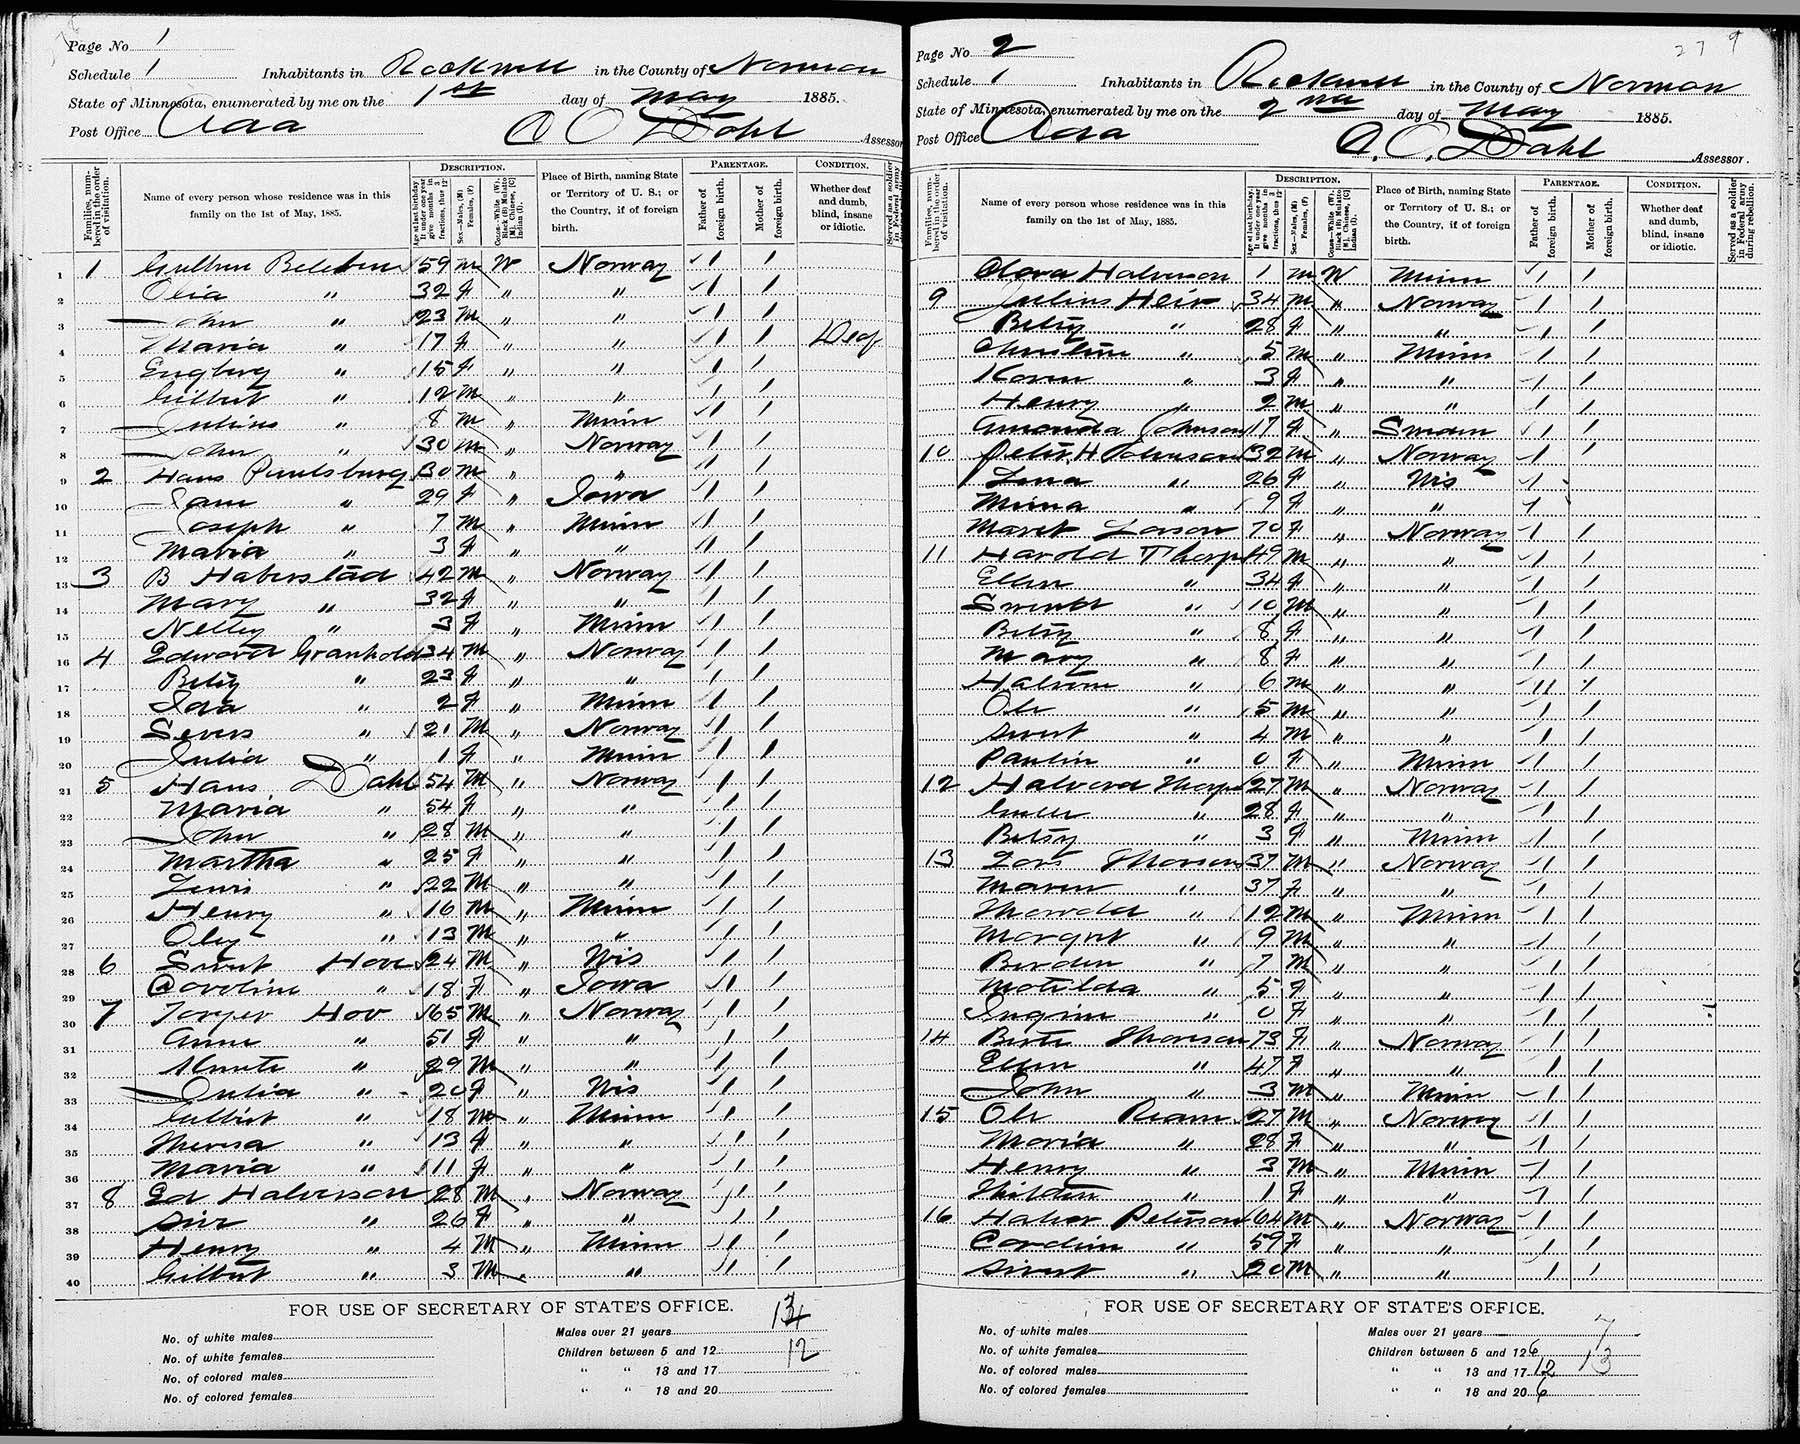 Page No 1
Schedule 1 Inhabitants in Rockwell in the County of Norman
State of Minnesota, enumerated by me on the 1st day of May 1885.
Post Office Ada O O Dahl Assessor
Families, numbered in the order of visitation.
Name of every person whose residence was in this family on the 1st of May, 1885.
DESCRIPTION.
Age at last birthday. If under one year give months in fractions, thus 3/12
Sex—Males, (M) Females, (F)
COLOR—White (W), Black (B) Mulatto [M], Chinese, [C] Indian (I).
Place of Birth, naming State or Territory of U. S.; or the Country, if of foreign birth.
PARENTAGE.
Father of foreign birth.
Mother of foreign birth.
CONDITION.
Whether deaf and dumb, blind, insane or idiotic.
Served as a soldier in Federal army
1 1 59 M W Norway 1 1
2 Olia " 32 F " " 1 1
3 John " 23 M " " 1 1
4 Maria " 17 F " " 1 1 Deaf
5 Engberg " 15 F " " 1 1
6 Gilbert " 12 M " " 1 1
7 Julius " 8 M " Minn 1 1
8 John " 30 M " Norway 1 1
9 2 Hans Paulsburg 30 M " " 1 1
10 " 29 F " Iowa 1 1
11 Joseph " 7 M " Minn 1 1
12 Maria " 3 F " " 1 1
13 3 B Haberstad 42 M " Norway 1 1
14 Mary " 32 F " " 1 1
15 Nelley " 3 F " Minn 1 1
16 4 Edward Granhold 34 M " Norway 1 1
17 Betsy " 23 F " " 1 1
18 Ida " 2 F " Minn 1 1
19 Severs " 21 M " Norway 1 1
20 Julia " 1 F " Minn 1 1
21 5 Hans Dahl 54 M " Norway 1 1
22 Maria " 54 F " " 1 1
23 John " 28 M " " 1 1
24 Martha " 25 F " " 1 1
25 Lewis " 22 M " " 1 1
26 Henry " 16 M " Minn 1 1
27 Oley " 13 M " " 1 1
28 6 Sivert Hove 24 M " Wis 1 1
29 Caroline " 18 F " Iowa 1 1
30 7 Torger Hov 65 M " Norway 1 1
31 Anne " 51 F " " 1 1
32 Knute " 29 M " " 1 1
33 Julia " 20 F " Wis 1 1
34 Gilbert " 18 M " Minn 1 1
35 Theresa " 13 F " " 1 1
36 Maria " 11 F " " 1 1
37 8 Ed Halverson 28 M " Norway 1 1
38 " 26 F " " 1 1
39 Henry " 4 M " Minn 1 1
40 Gilbert " 3 M " " 1 1
FOR USE OF SECRETARY OF STATE'S OFFICE.
No. of white males
No. of white females
No. of colored males
No. of colored females
Males over 21 years
Children between 5 and 12 12
" " 13 and 17
" " 18 and 20
Page No 2
27 9
Schedule 1 Inhabitants in Rockwell in the County of Norman
State of Minnesota, enumerated by me on the 2nd day of May 1885.
Post Office Ada O. O. Dahl Assessor.
Families, numbered in the order of visitation.
Name of every person whose residence was in this family on the 1st of May, 1885.
DESCRIPTION.
Age at last birthday. If under one year give months in fractions, thus 3/12
Sex—Males, (M) Females, (F)
COLOR—White (W), Black (B) Mulatto [M], Chinese, [C] Indian (I).
Place of Birth, naming State or Territory of U. S.; or the Country, if of foreign birth.
PARENTAGE.
Father of foreign birth.
Mother of foreign birth.
CONDITION.
Whether deaf and dumb, blind, insane or idiotic.
Served as a soldier in Federal army during rebellion.
Halverson 1 M W Minn 1 1
9 Julius Heir 34 M " Norway 1 1
Betsy " 28 F " " 1 1
" 5 M " Minn 1 1
Karen " 3 F " " 1 1
Henry " 2 M " " 1 1
Amanda Johnson 17 F " Sweden 1 1
10 Peter H Johnson 32 M " Norway 1 1
Lena " 26 F " Wis 1
Minna " 9 F " " 1
Maret Larson 70 F " Norway 1 1
11 Harold Thorp 49 M " " 1 1
Ellen " 34 F " " 1 1
" 10 M " " 1 1
Betsy " 8 F " " 1 1
Mary " 8 F " " 1 1
" 6 M " " 1 1
Ole " 5 M " " 1 1
Sivert " 4 M " " 1 1
Paulin " 0 F " Minn 1 1
12 Halvord Thorp 27 M " Norway 1 1
" 28 F " " 1 1
Betsy " 3 F " Minn 1 1
13 Lars Thorson 37 M " Norway 1 1
Maren " 37 F " " 1 1
" 12 M " Minn 1 1
Margret " 9 M " " 1 1
" 7 M " " 1 1
Matilda " 5 F " " 1 1
" 0 F " " 1 1
14 Thorson 73 F " Norway 1 1
Ellen " 47 F " " 1 1
John " 3 M " Minn 1 1
15 Ole 27 M " Norway 1 1
Maria " 28 F " " 1 1
Henry " 3 M " Minn 1 1
" 1 F " " 1 1
16 Halvor Peterson 64 M " Norway 1 1
" 59 F " " 1 1
Sivert " 20 M " " 1 1
FOR USE OF SECRETARY OF STATE'S OFFICE.
No. of white males
No. of white females
No. of colored males
No. of colored females
Males over 21 years 7
Children between 5 and 12 6 13
" " 13 and 17 12
" " 18 and 20 6